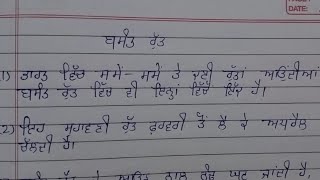 DATE:
ਬਸੰਤ ਰੁੱਤ
1) ਭਾਰਤ ਵਿੱਚ ਸਮੇਂ-ਸਮੇਂ ਤੇ ਕਈ ਰੁੱਤਾਂ ਆਉਂਦੀਆਂ
ਬਸੰਤ ਰੁੱਤ ਵਿੱਚ ਵੀ ਇਨ੍ਹਾਂ ਵਿੱਚੋਂ ਇੱਕ ਹੈ।
(2) ਇਹ ਸੁਹਾਵਣੀ ਰੁੱਤ ਫ਼ਰਵਰੀ ਤੋਂ ਲੈ ਕੇ ਅਪਰੈਲ
ਚੱਲਦੀ ਹੈ।
ਰੁੱਤ ਦੇ ਨਾਲ ਠੰਡ ਘਟ ਜਾਂਦੀ ਹੈ,